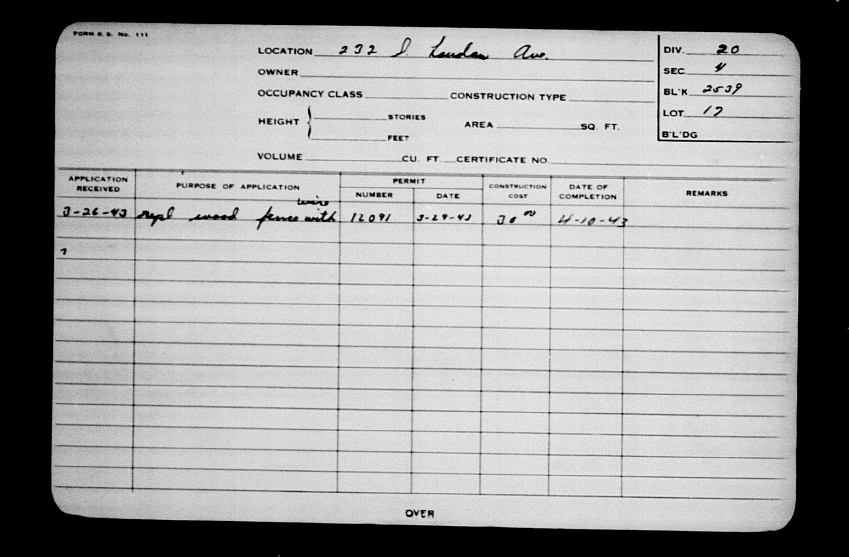 FORM B. B. No. 111
LOCATION 232 S. Loudon Ave.
OWNER
OCCUPANCY CLASS CONSTRUCTION TYPE
HEIGHT { STORIES AREA SQ. FT.
FEET
VOLUME CU. FT. CERTIFICATE NO.
DIV. 20
SEC. 4
BL'K 2539
LOT 17
B'L'DG
APPLICATION RECEIVED PURPOSE OF APPLICATION PERMIT NUMBER DATE CONSTRUCTION COST DATE OF COMPLETION REMARKS
wire
3-26-43 repl wood fence with 12091 3-29-43 30 00 4-10-43
OVER